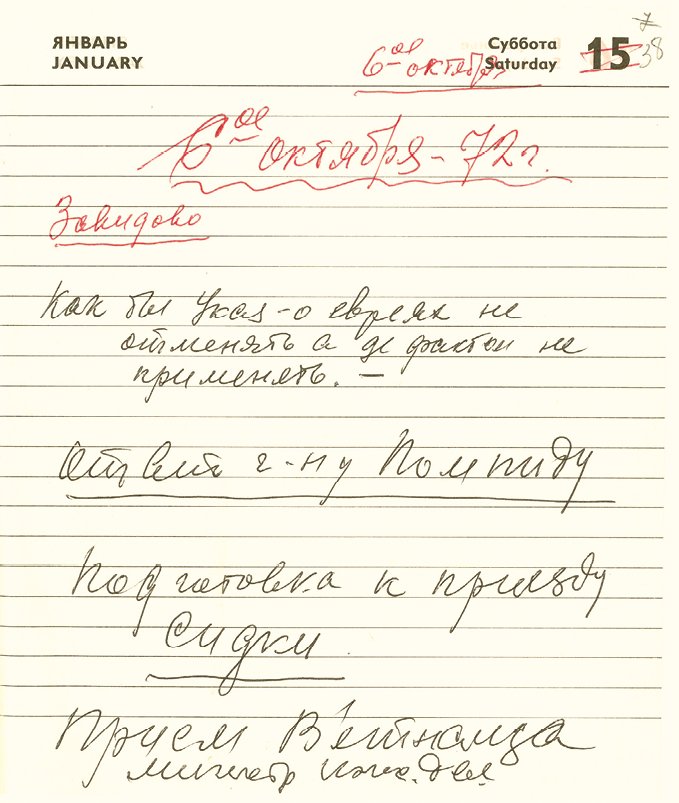 ЯНВАРЬ
JANUARY
Суббота
Saturday
15
7
38
6-ое октября
6-ое октября - 72 г.
Завидово
Как бы Указ - о евреях не
отменять а де фактом не
применять. —
Ответ г-ну Помпиду
Подготовка к приезду
Сидки
Прием В'етнамца
министр